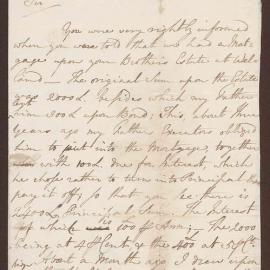 Sir
You were very rightly informed
when you were told that we had a Mort
gage upon your Brothers Estate at Wel
land - The original Sum upon the Estate
was 2000£. besides which my Father
him 200£ upon Bond; This, about three
Years ago my Father Executors obliged
him to put into the Mortgage, together
with 10£ due for Interest, which
he chose rather to turn into Principal than
pay it off, so that you see there is
2400£ Principal Sum. The Interest
of which is 100£ Ann; The 2000
being at 4 Cent, & the 400 at 5 Ct
About a Month ago I drew upon